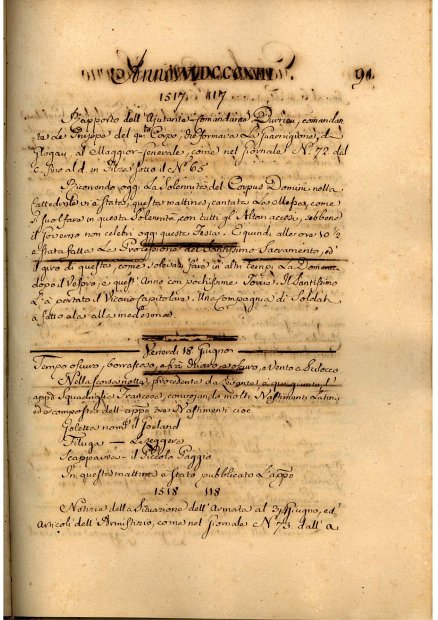 Anno MDCCCXIII 91
1517. 117
Rapporto dell'Ajutante-Comandante Durrieu, comandan
te de Truppe del 4.to Corpo, che formava La Guarnigione, di
Glogau, al Maggior-Generale, come nel Giornale N.º 72 dal
fino al d. in Filza sotto il Nº 65
Ricorrendo oggi La Solennità del Corpus Domini nella
Cattedrale vi è stata, questa mattina, cantata La Messa, come
si suol fare in questa Solennità, con tutti gli Altari accesi, sebbene
il Governo non celebri oggi questa Festa. E quindi alle ore 10 ½
è stata fatta La Processione del Santissimo Sacramento, ed
il giro di questa, come solevasi fare in altri tempi La Domenica
dopo il Vespro, e quest'Anno con pochissime Torcie. Il Santissimo
L'à portato il Vicario Capitolare. Una Compagnia di Soldati
à fatto ala alla medesima.
Venerdì 18 Giugno
Tempo oscuro, borrascoso, e fra chiaro, e oscuro, e Vento a Scilocco
Nella scorsa notte, procedente da Levante, è qui giunta l'
app.o Squadriglia Francese, convojando molti Bastimenti Latini,
ed è composta dell'appo tre Bastimenti cioè
Goletta nom.a il Goeland
Filuga — La Leggera
Scappavia — il Piccolo Paggio
In questa mattina è stato pubblicato L'appo
1518 118
Notizie della Situazione dell'Armata al 3 Giugno, ed
Articoli dell'Armistizio, come nel Giornale N.º 73. dall'a